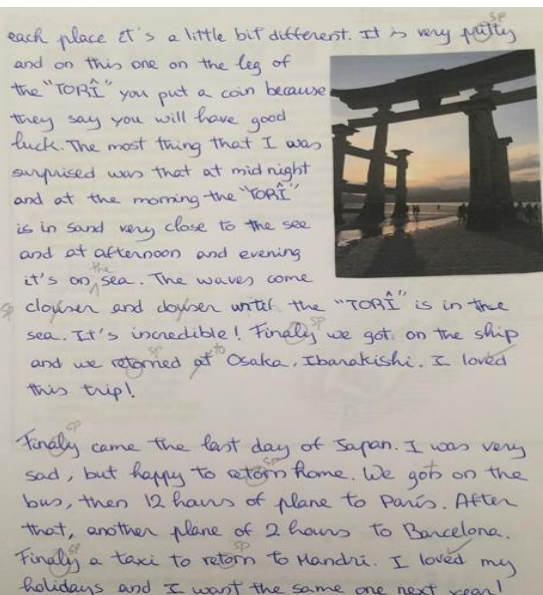 each place it's a little bit different. It is very prutty
and on this one on the leg of
the "TORÎ" you put a coin because
they say you will have good
luck. The most thing that I was
surprised was that at mid night
and at the morning the "TORÎ"
is in sand very close to the see
and at afternoon and evening
it's on the sea. The waves come
closer and closer until the "TORÎ" is in the
sea. It's incredible! Finaly we got on the ship
and we retorned at to Osaka, Ibarakishi. I loved
this trip!
Finaly came the last day of Japan. I was very
sad, but happy to retorn home. We got on the
bus, then 12 hours of plane to París. After
that, another plane of 2 hours to Barcelona.
Finaly a taxi to retorn to Mandri. I loved my
holidays and I want the same one next year!